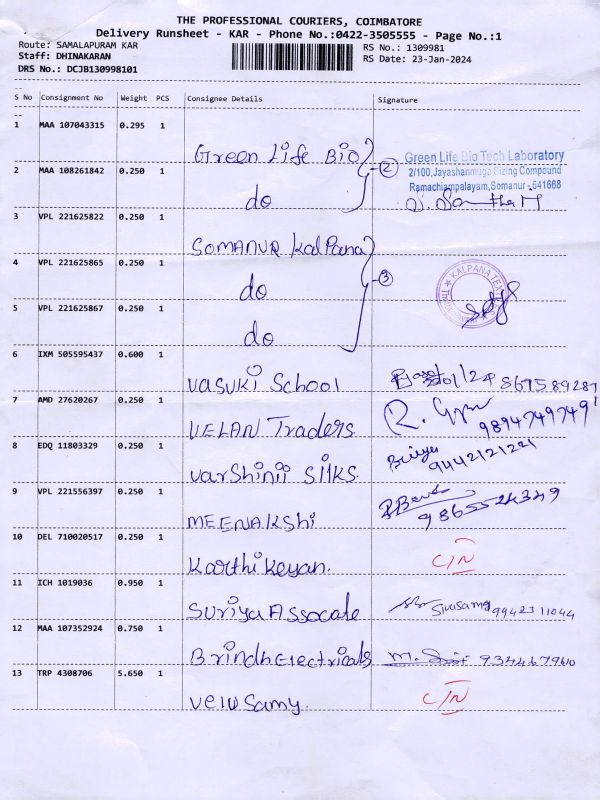 THE PROFESSIONAL COURIERS, COIMBATORE
Delivery Runsheet - KAR - Phone No.:0422-3505555 - Page No.:1
Route: SAMALAPURAM KAR
RS No.: 1309981
Staff: DHINAKARAN
RS Date: 23-Jan-2024
DRS No.: DCJB130998101
S No Consignment No Weight PCS Consignee Details Signature
1 MAA 107043315 0.295 1 Green Life Bio
2 MAA 108261842 0.250 1 do
2
Green Life Bio Tech Laboratory
2/100,Jayashanmuga Sizing Compound
Ramachiampalayam,Somanur-641668
3 VPL 221625822 0.250 1 SOMANUR Kalpana
4 VPL 221625865 0.250 1 do
3
KALPANA TEX
5 VPL 221625867 0.250 1 do
6 IXM 505595437 0.600 1 Vasuki School
7 AMD 27620267 0.250 1 VELAN Traders 9894749749
8 EDQ 11803329 0.250 1 Varshinii Silks. 9442121221
9 VPL 221556397 0.250 1 MEENAKSHI
10 DEL 710020517 0.250 1 Karthikeyan.
11 ICH 1019036 0.950 1 Suriya Assocate Sivasamy 9942311044
12 MAA 107352924 0.750 1 Brindh Electricals
13 TRP 4308706 5.650 1 Velusamy.